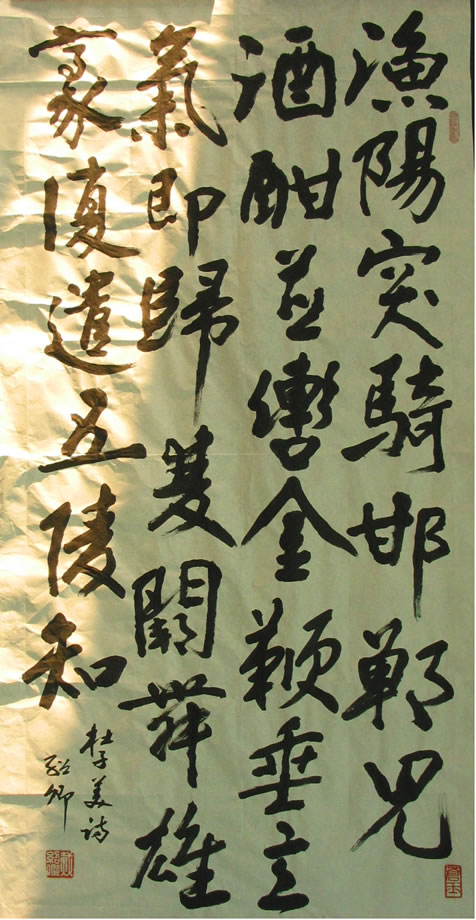 漁陽突騎邯鄲兒
酒酣並轡金鞭垂意
氣即歸雙闕舞雄
豪復遣五陵知
杜子美詩
卿